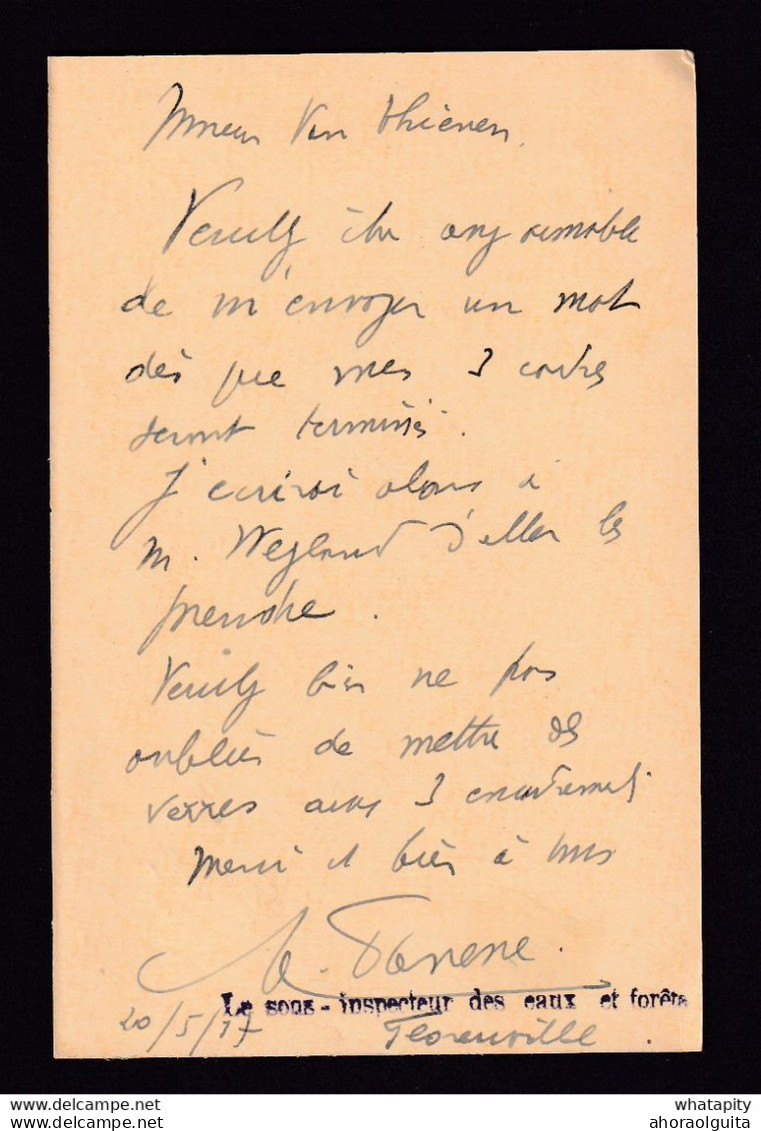 Monsieur Van Thienen,
Veuillez être assez aimable
de m'envoyer un mot
dès que mes 3 cadres
seront terminés.
J'écrirai alors à
M. d'aller les
prendre.
Veuillez bien ne pas
oublier de mettre des
verres aux 3 encadrements.
Merci et bien à vous
20/5/17
Le sous-inspecteur des eaux et forêts
Florenville
whatapity
www.delcampe.net
ahoraolguita
www.delcampe.net